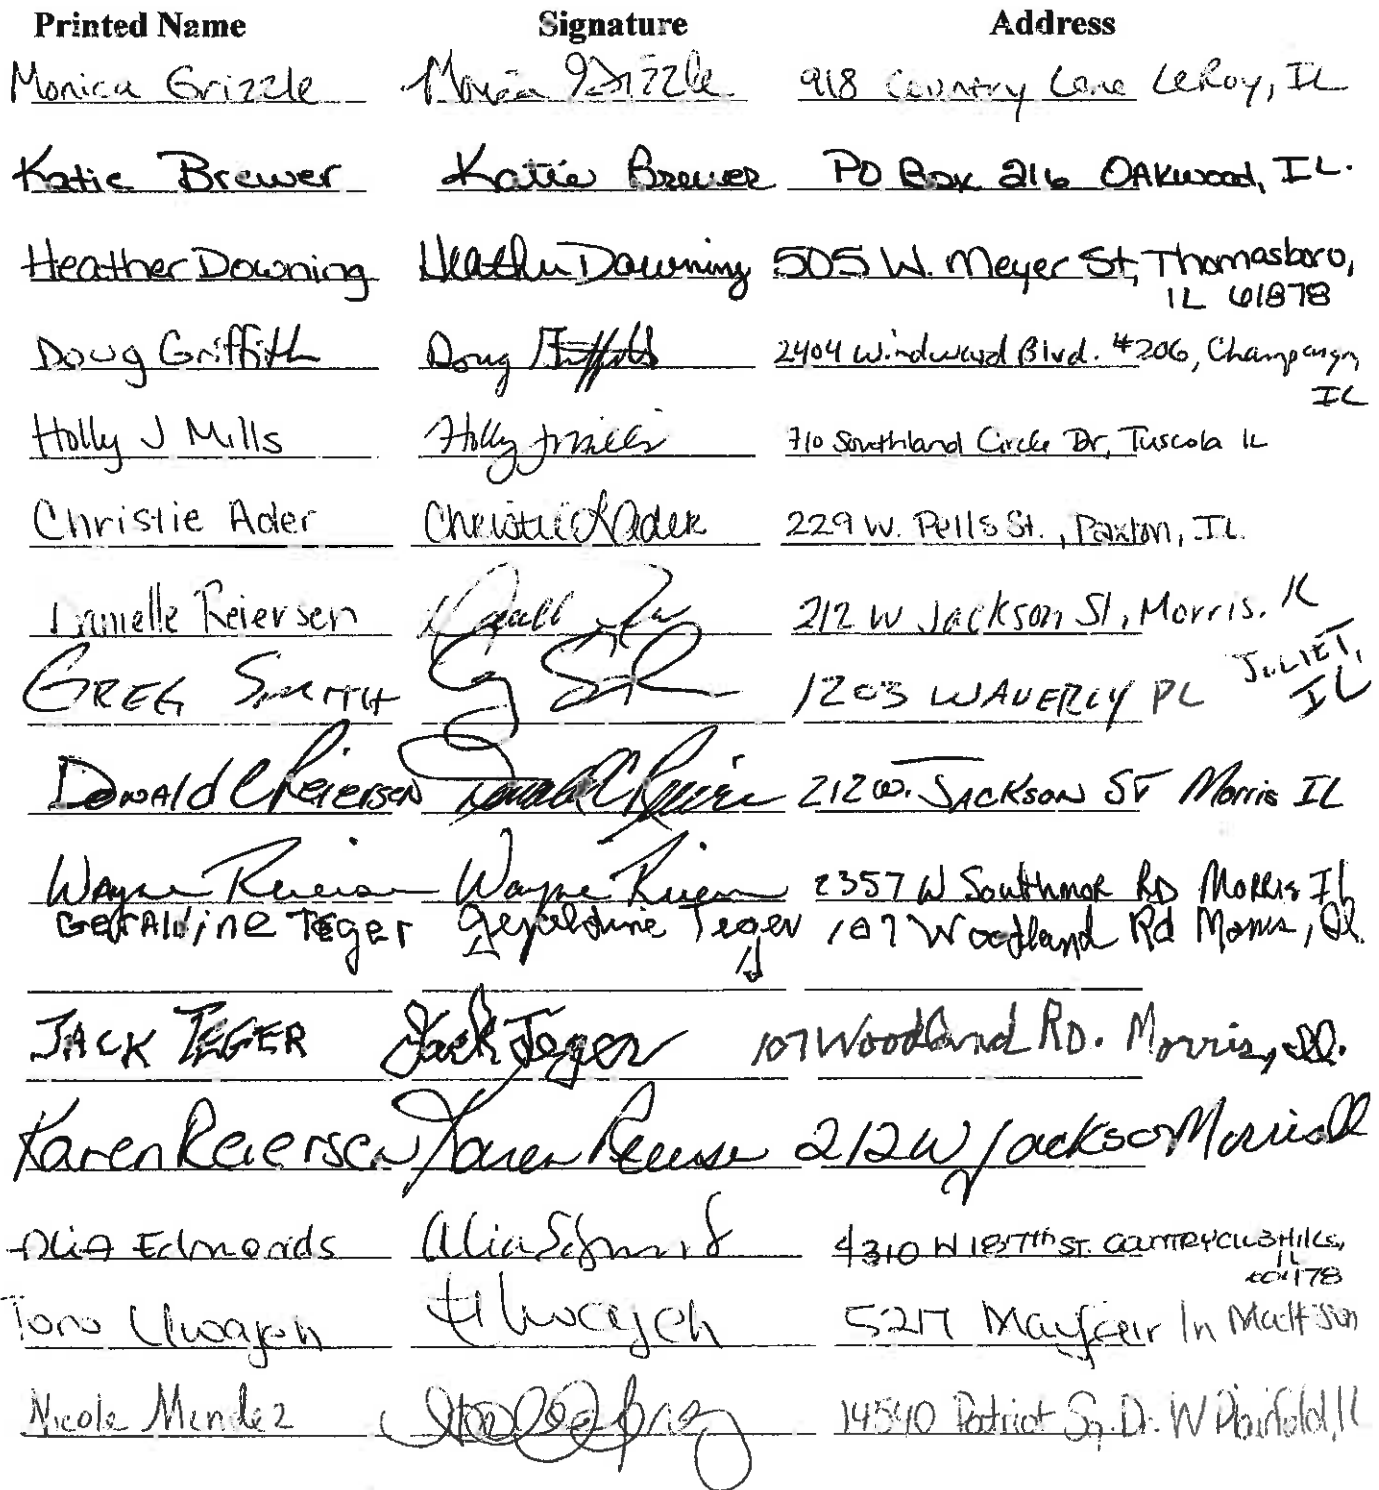 Printed Name Signature Address
Monica Grizzle Monica Grizzle 918 Country Lane LeRoy, IL
Katie Brewer Katie Brewer PO Box 216 OAKwood, IL.
Heather Downing Heather Downing 505 W. Meyer St, Thomasboro,
IL 61878
Doug Griffith Doug Griffith 2404 Windward Blvd. #206, Champaign,
IL
Holly J Mills Holly J Mills 710 Southland Circle Dr, Tuscola IL
Christie Ader Christie L Ader 229 W. Pells St., Paxton, IL.
Danielle Reiersen 212 W Jackson St, Morris. IL
GREG SMITH 1203 WAVERLY PL JOLIET,
IL
Donald C Reiersen Donald C Reiersen 212 W. JACKSON ST Morris IL
Wayne Reiersen Wayne Reiersen 2357 W Southmor RD MORRIS IL
GerALDine TEGer Geraldine Teger 107 Woodland Rd Morris, Il.
JACK TEGER Jack Teger 107 Woodland RD. Morris, Ill.
Karen Reiersen Karen Reiersen 212 W Jackson Morris Il
Alia Edmonds 4310 W 187th ST. COUNTRY CLUB HILLS,
IL
60478
Toro Uwajeh Uwajeh 5217 Mayfair ln Mattson
Nicole Mendez 14540 Patriot Sq. Dr. W Plainfield, Il